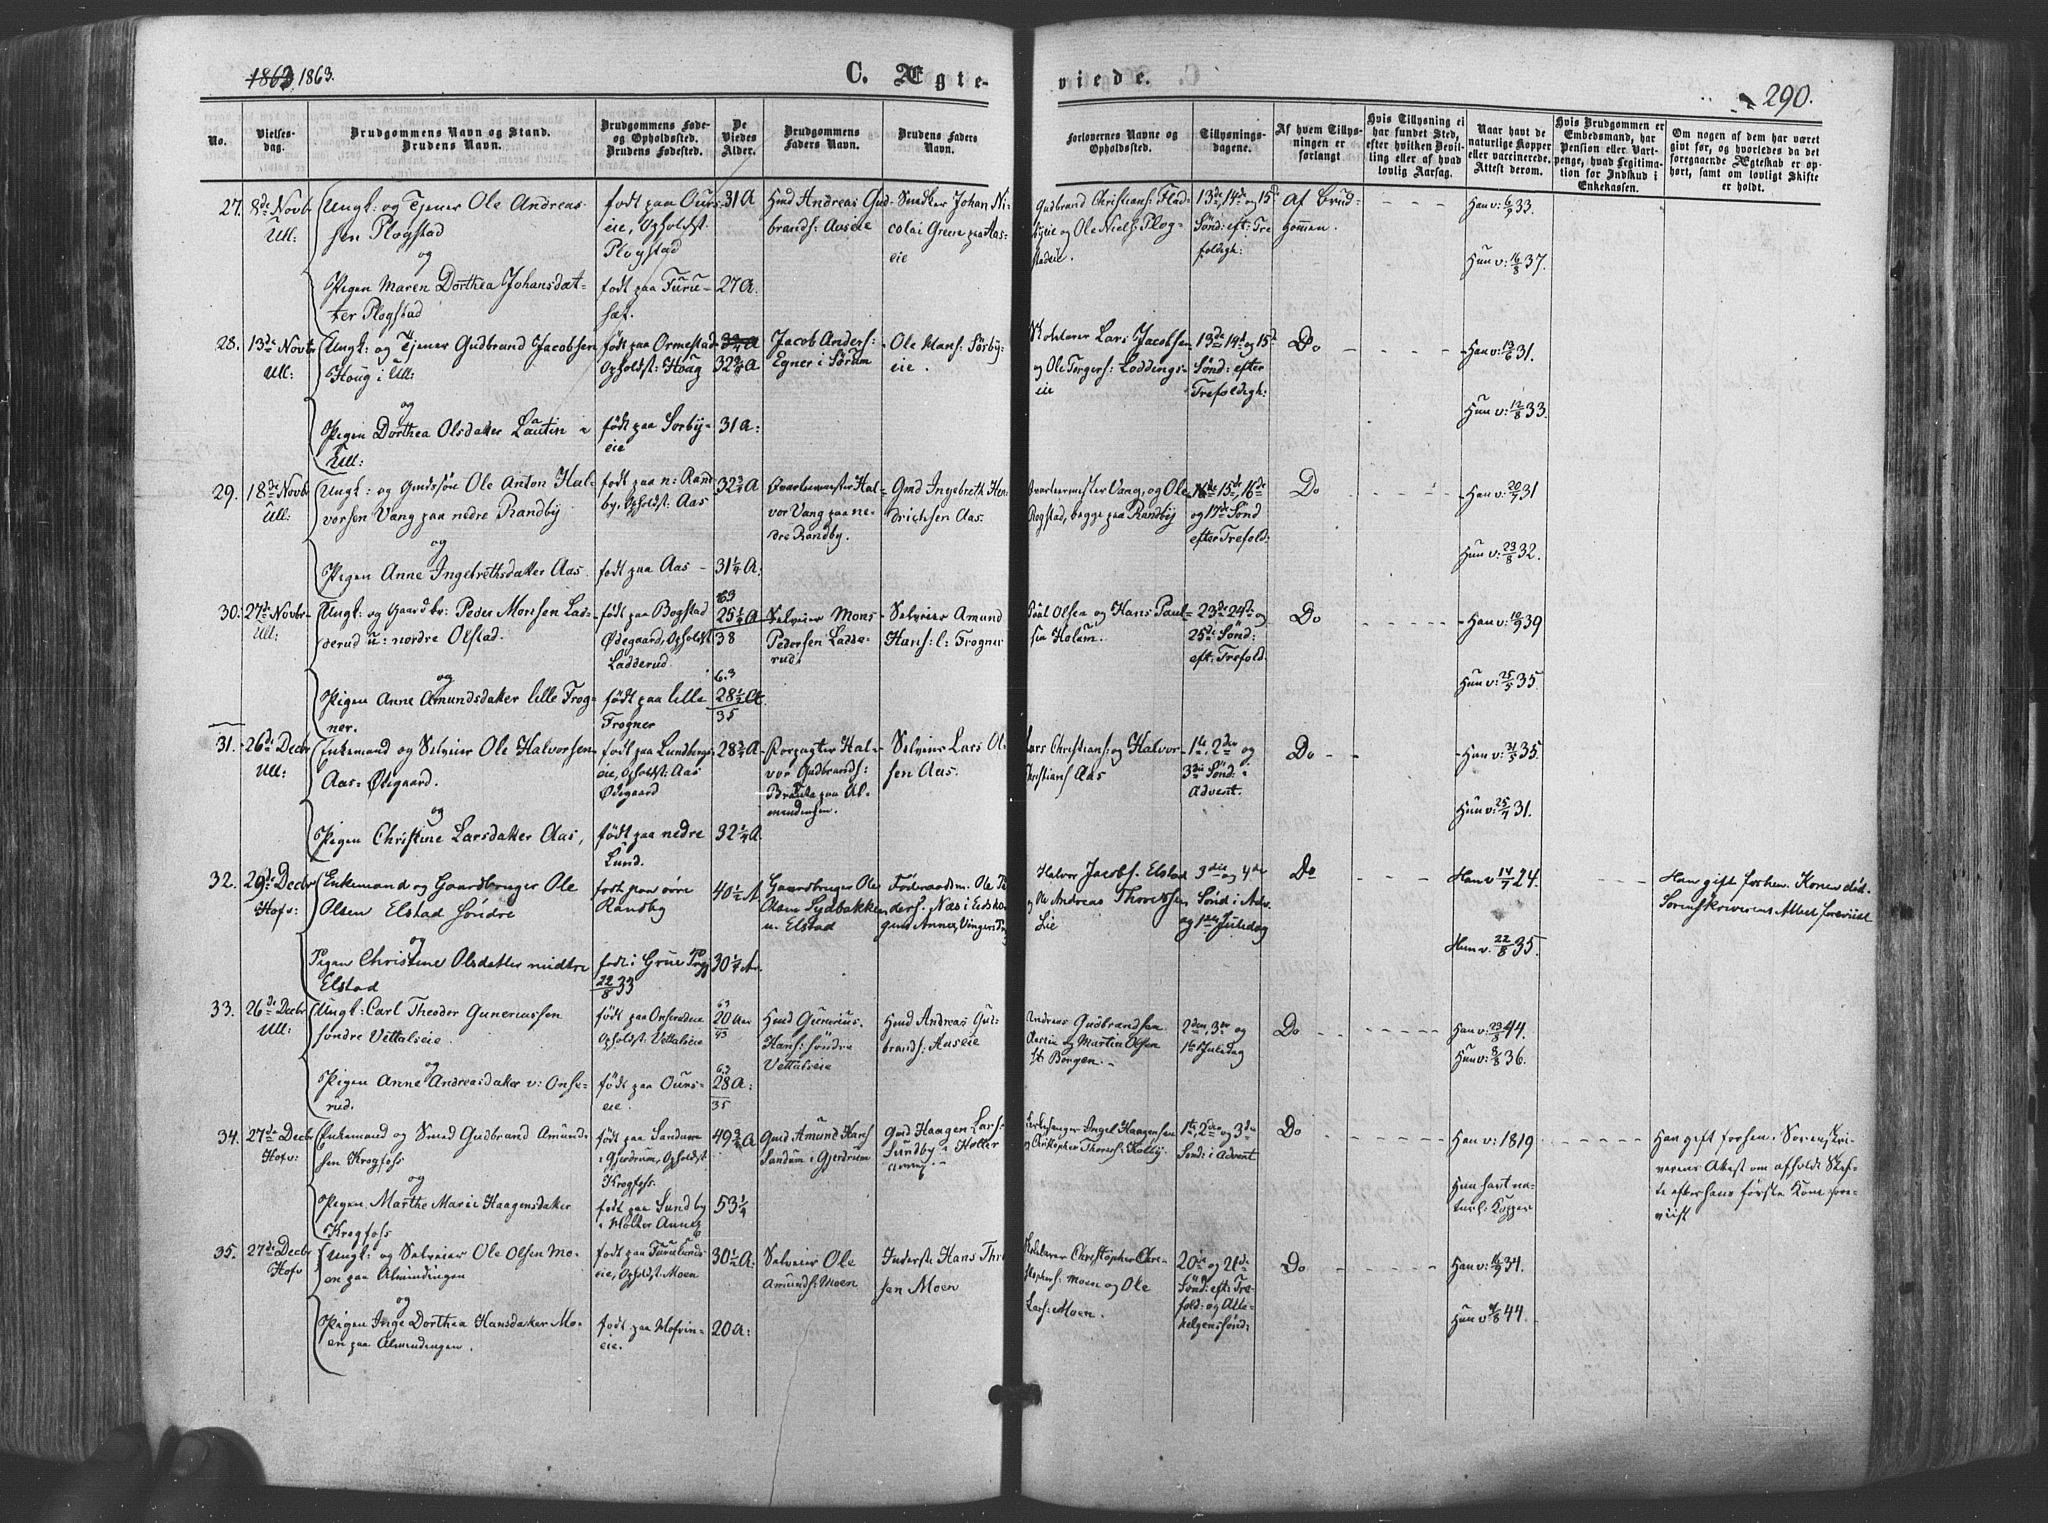 1863 1863.
C. Ægteviede.
290.
No.
Vielses-
dag.
Brudgommens Navn og Stand.
Brudens Navn.
Brudgommens Føde-
og Opholdssted.
Brudens Fødested.
De
Viedes
Alder.
Brudgommens
Faders Navn.
Brudens Faders
Navn.
Forlovernes Navne og
Opholdssted.
Tillysnings-
dagene.
Af hvem Tillys-
ningen er
forlangt.
Hvis Tillysning ei
har fundet Sted,
efter hvilken Bevil-
ling eller af hvad
lovlig Aarsag.
Naar havt de
naturlige Kopper
eller vaccinerede.
Attest derom.
Hvis Brudgommen er
Embedsmand, har
Pension eller Vart-
penge, hvad Legitima-
tion for Indskud i
Enkekassen.
Om nogen af dem har været
gift før, og hvorledes da det
foregaaende Ægteskab er op-
hørt, samt om lovligt Skifte
er holdt.
27. 8de Novbr
Ull:
Ungk: og Tjener Ole Andreas-
sen Plogstad
og
Pigen Maren Dorthea Johansdat-
ter Plogstad
født paa Ours-
eie, Opholdst:
Plogstad
født paa Furu-
sæt.
31 A
27 A.
Hmd Andreas Gud-
brands: Aaseie
Snedker Johan Ni-
colai Green paa Aas-
eie
Gudbrand Christians: Flad-
og Ole Niels: Plog-
stadeie.
13de, 14de og 15de
Sønd: eft: Tre
foldigh:
Af Brud-
gommen.
Han v: 6/9 33.
Hun v: 16/8 37.
28. 13de Novbr
Ull:
Ungk: og Tjener Gudbrand Jacobsen
Houg i Ull:
og
Pigen Dorthea Olsdatter Lautin i
Ull:
født paa Ormestad
Opholdst: Houg
født paa Sørby-
eie
32 3/4 A
31 A:
Jacob Anders:
Egner i Sørum
Ole Hans: Sørby-
eie.
Skolelærer Lars Jacobsen
og Ole Torgers: Loddings-
eie
13de 14de og 15de
Sønd: efter
Trefoldigh:
Do
Han v: 13/6 31.
Hun v: 12/8 33.
29. 18de Novbr
Ull:
Ungk: og Gmdssøn Ole Anton Hal-
vorsen Vang paa nedre Randby
og
Pigen Anne Ingebrethsdatter Aas.
født paa n: Rand
by, Opholdst: Aas
født paa Aas
32 3/4 A
31 1/4 A:
Qvarteermester Hal-
vor Vang paa ne-
dre Randby.
Gmd Ingebreth Hen-
drichsen Aas.
Qvarteermester Vang, og Ole
Rogstad, begge paa Randby
15de, 16de
og 17de Sønd
efter Trefold:
Do
Han v: 20/7 31
Hun v: 23/8 32.
30. 27de Novbr
Ull:
Ungk: og Gaardbr: Peder Monsen Lad-
derud u: nordre Olstad.
og
Pigen Anne Amundsdatter lille Frog-
ner.
født paa Bogstad
Ødegaard, Opholdst
Ladderud.
født paa lille
Frogner
63
25 1/2 A
38
63
28 1/2 A.
35
Selveier Mons
Pedersen Ladde-
rud:
Selveier Amund
Hans: l: Frogner
Paul Olsen og Hans Paul-
sen Holum.
23de 24de og
25de Sønd:
eft: Trefold.
Do
Han v: 10/9 39
Hun v: 25/5 35.
31. 26de Decbr
Ull:
Enkemand og Selveier Ole Halvorsen
Aas-Ødegaard.
og
Pigen Christine Larsdatter Aas,
født paa Lundbergs-
eie, Opholdst: Aas
Ødegaard
født paa nedre
Lund.
28 3/4 A
32 1/4 A
Korpagter Hal-
vor Gudbrands:
Braata paa Al-
mendingen.
Selveier Lars Ol-
sen Aas.
Lars Christians: og Halvor
Christians Aas
1ste, 2den og
3die Sønd: i
Advent.
Do
Han v: 31/5 35.
Hun v: 25/7 31.
32. 29de Decbr
Hofv:
Enkemand og Gaardbruger Ole
Olsen Elstad søndre
og
Pigen Christine Olsdatter midtre
Elstad
født paa øvre
Randby
født i Grue Prgj
22/8 33
40 1/2 A
30 1/4 A.
Gaardbruger Ole
Olsen Lydbakken
u. Elstad
Føderaadsm. Ole Pe-
ders. Næs i Eidskog
Annex, Vinger
Halvor Jacobs. Elstad
og Ole Andreas Thoressen
Lie
3die og 4de
Sønd i Adv
og 1ste Juledag
Do
Han v 14/7 24.
Hun v. 22/8 35.
Han gift forhen. Konen død.
Sorenskriverens Attest foreviist
33. 26de Decbr
Ull:
Ungk: Carl Theodor Guneriussen
søndre Vettalseie.
og
Pigen Anne Andreasdatter v: Onse-
rud.
født paa Onserudeie
Opholdst: Vettalseie
født paa Ours-
eie.
63
20 Aar
43
63
28 A:
35
Hmd Gunerius
Hans: søndre
Vettalseie
Hmd Andreas Gud-
brands: Aaseie
Andreas Gudbrandsen
Aaseie og Martin Olsen
st: Borgen.
2den, 3die og
1ste Juledag
Do
Han v: 23/8 44.
Hun v: 8/8 36.
34. 27de Decbr
Hofv:
Enkemand og Smed Gudbrand Amund-
sen Krogfoss
og
Pigen Marthe Marie Haagensdatter
Krogfoss
født paa Sandum
i Gjerdrum, Opholdst
Krogfoss.
født paa Sundby
i Holter Annex
49 3/4 A
53 1/4
Gmd Amund Hans
Sandum i Gjerdrum
Gmd Haagen Lars-
Sundby i Holter
Annex
Kirkesanger Ingel Haagensen
og Christopher Thores: Kolby
1ste, 2den og 3die
Sønd: i Advent
Do
Han v: 1819
Hun havt na-
turl: Kopper
Han gift forhen. Sorenskri-
verens Attest om afholdt Skif-
te efter hans første Kone fore-
viist
35. 27de Decbr
Hofv
Ungk: og Selveier Ole Olsen Mo-
en paa Almindingen
og
Pigen Inge Dorthea Hansdatter Mo-
en paa Almindingen.
født paa Furulunds-
eie, Opholdst: Moen
født paa Hofvin-
eie.
30 1/2 A:
20 A:
Selveier Ole
Amunds: Moen
Inderst: Hans Thor-
sen Moen
Skolelærer Christopher Chri-
stophers: Moen og Ole
Lars: Moen.
20de og 21de
Sønd: eft: Tre-
fold: og Alle-
helgenssønd:
Do
Han v: 16/9 34.
Hun v: 9/8 44.